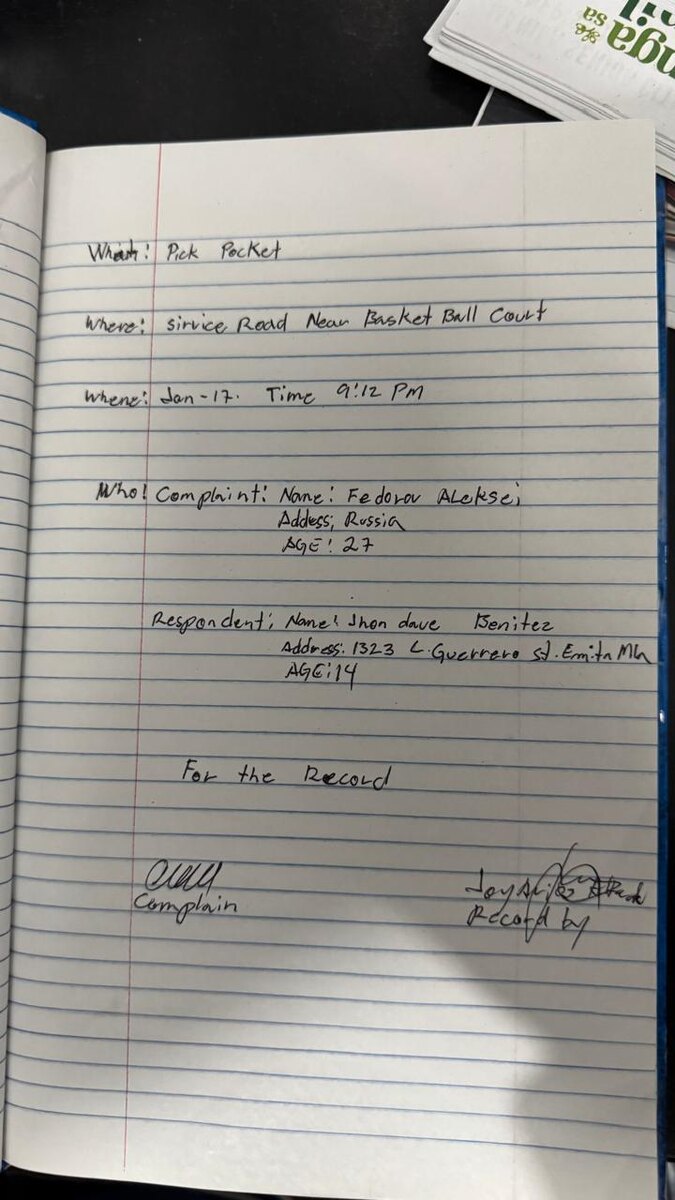 nga
sa
What: Pick Pocket
Where: Sirvice Road Near Basket Ball Court
Whene: Jan-17. Time 9:12 PM
Who! Complaint: Name: Fedorov Aleksei
Addess; Russia
AGE: 27
Respondent; Name: Jhon dave Benitez
Address: 1323 L. Guerrero st. Emita Mla
AGE: 14
For the Record
Complain
Record by